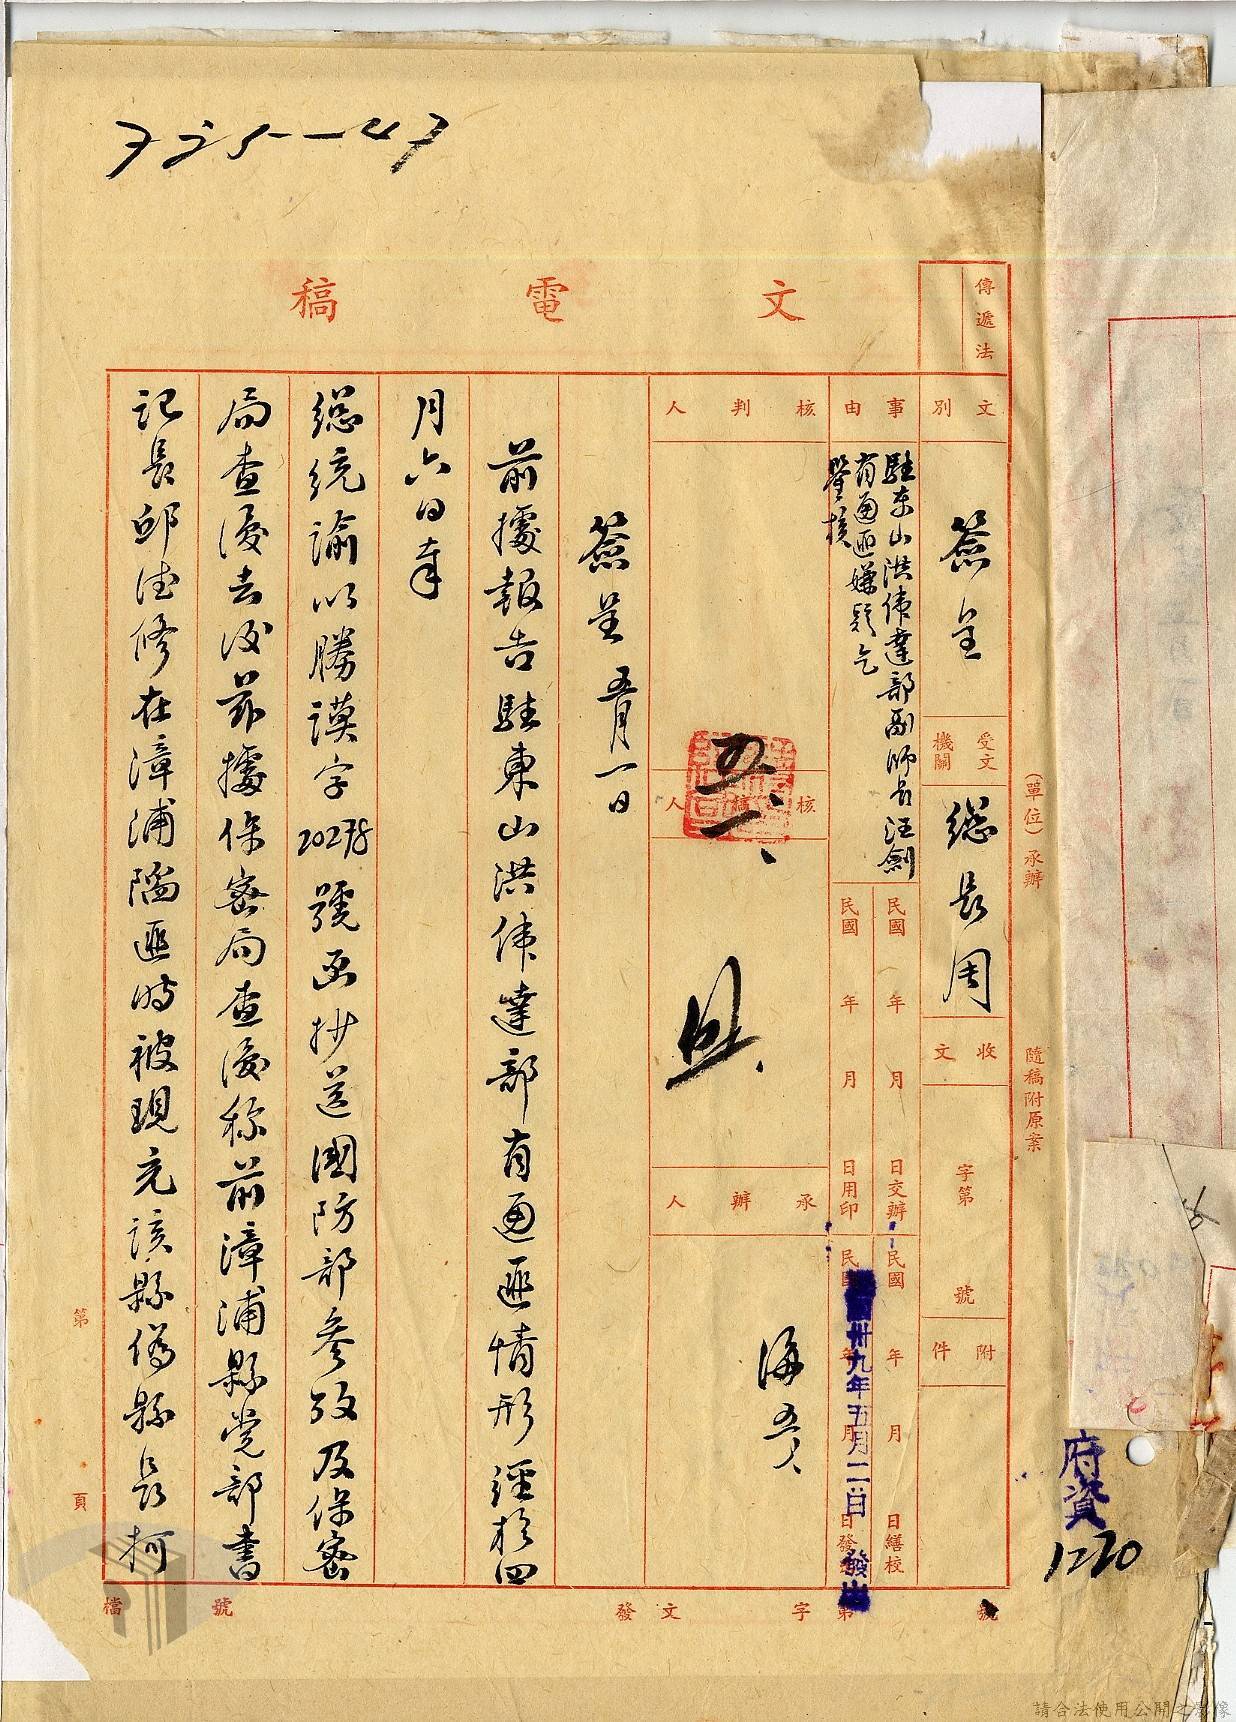 文電稿
傳遞法
文別
簽呈
受文機關
總長周
收文
字第
號
附件
事由
駐东山洪偉達部副师長汪劍
有通匪嫌疑乞
鑒核
民國 年 月 日交辦
民國 年 月 日繕校
民國 年 月 日用印
民國 年 月 日發
卅九年五月二日發出
核判人
核稿人
五、一、
承辦人
海 五、一
簽呈 五月一日
前據報告駐東山洪偉達部有通匪情形經於四
月六日奉
總統諭以勝謨字20278號函抄送國防部參攷及保密
局查復去後茲據保密局查復称前漳浦縣党部書
記長邱德修在漳浦陷匪时被現充該縣偽縣長柯
(單位)承辦
隨稿附原案
第 頁
檔號
發文 字 第 號
府資
1220
請合法使用公開之影像